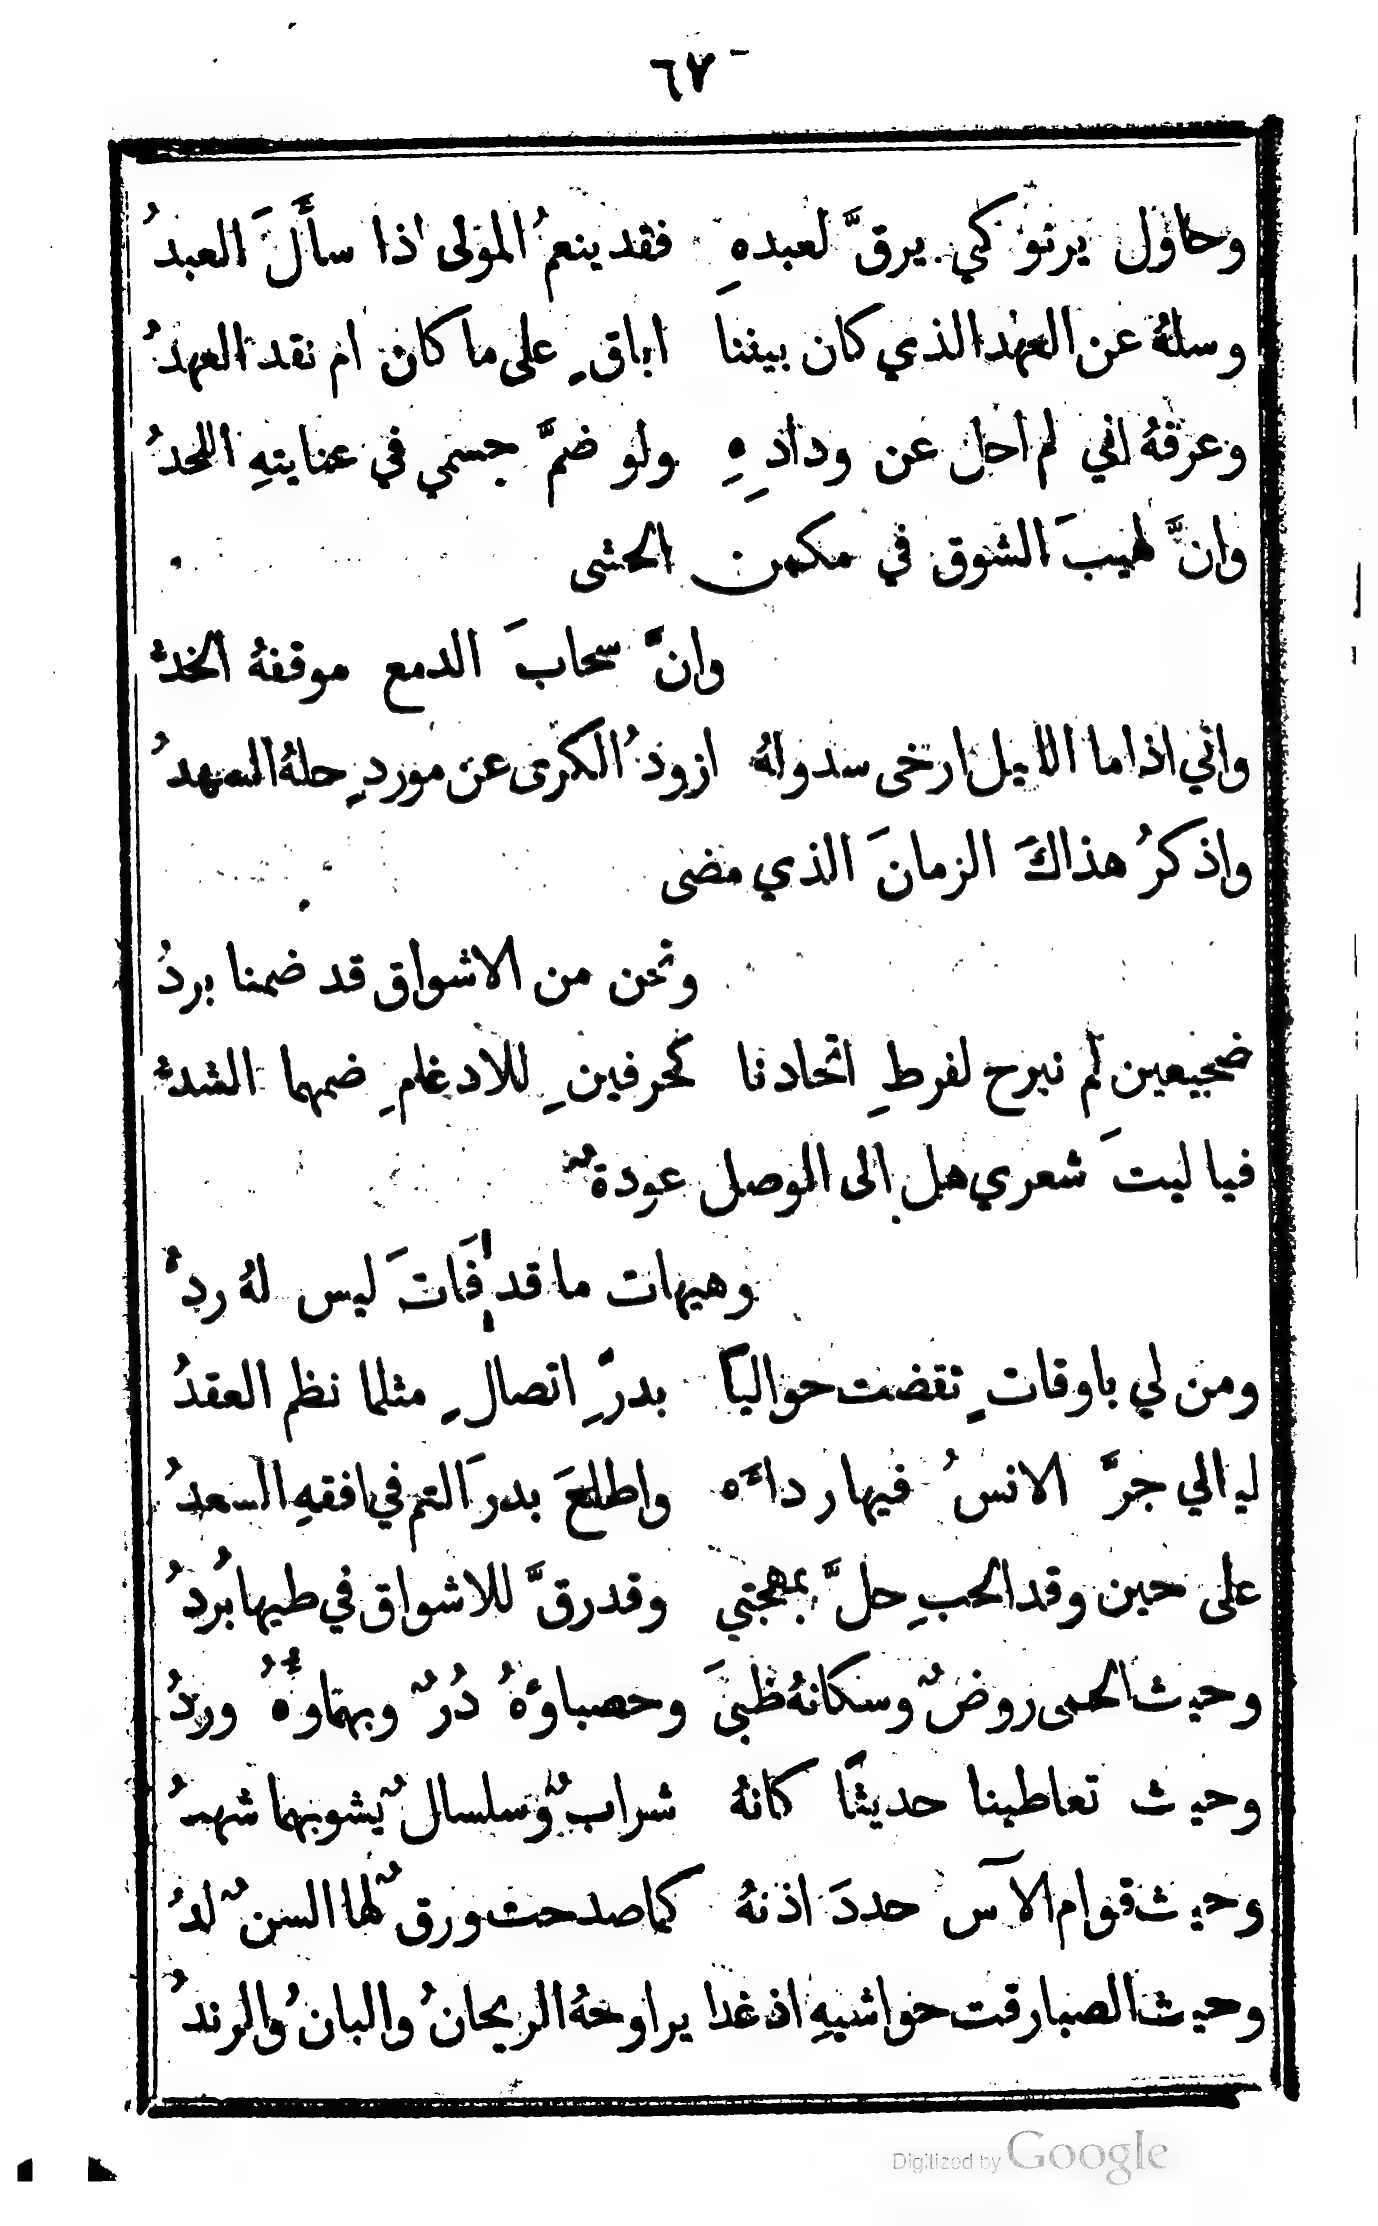 ٦٧
وحاول يرنو كي يرقَّ لعبدهِ فقد ينعمُ المولى اذا سأَلَ العبدُ
وسلهُ عن العهد الذي كان بيننا اباقٍ على ما كان ام نقد العهدُ
وعرفهُ اني لم احل عن ودادهِ ولو ضمَّ جسمي في عنايتهِ اللحدُ
وانَّ لهيبَ الشوق في مكمن الحشى
وانَّ سحابَ الدمع موقفهُ الخدُّ
واني اذا ما الليل ارخى سدولهُ ازودُ الكرى عن موردٍ حلهُ السهدُ
واذكرُ هذاكَ الزمانَ الذي مضى
ونحن من الاشواق قد ضمنا بردُ
ضجيعين لم نبرح لفرطِ اتحادنا كحرفينِ للادغامِ ضمهما الشدُّ
فيا ليتَ شعري هل الى الوصل عودةٌ
وهيهات ما قد فَاتَ ليس لهُ ردُّ
ومن لي باوقاتٍ تقضت حواليًا بدرِّ اتصالٍ مثلما نظم العقدُ
ليالي جرَّ الانسُ فيها رداءَه واطلعَ بدرَ التم في افقهِ السعدُ
على حين وقد الحبِ حلَّ بمهجتي وقد رقَّ للاشواق في طيها بُردُ
وحيث الحمى روضٌ وسكانهُ ظبىَ وحصباؤهُ دُرٌ وبهماوهُ وردُ
وحيث تعاطينا حديثًا كانهُ شرابٌ وسلسالٌ يشوبهما شهدُ
وحيث قوام الآس حددَ اذنهُ كما صدحت ورقٌ لها السنٌ لدُ
وحيث الصبا رقت حواشيهِ اذ غدا يراوحهُ الريحانُ والبانُ والرندُ
Digitized by Google